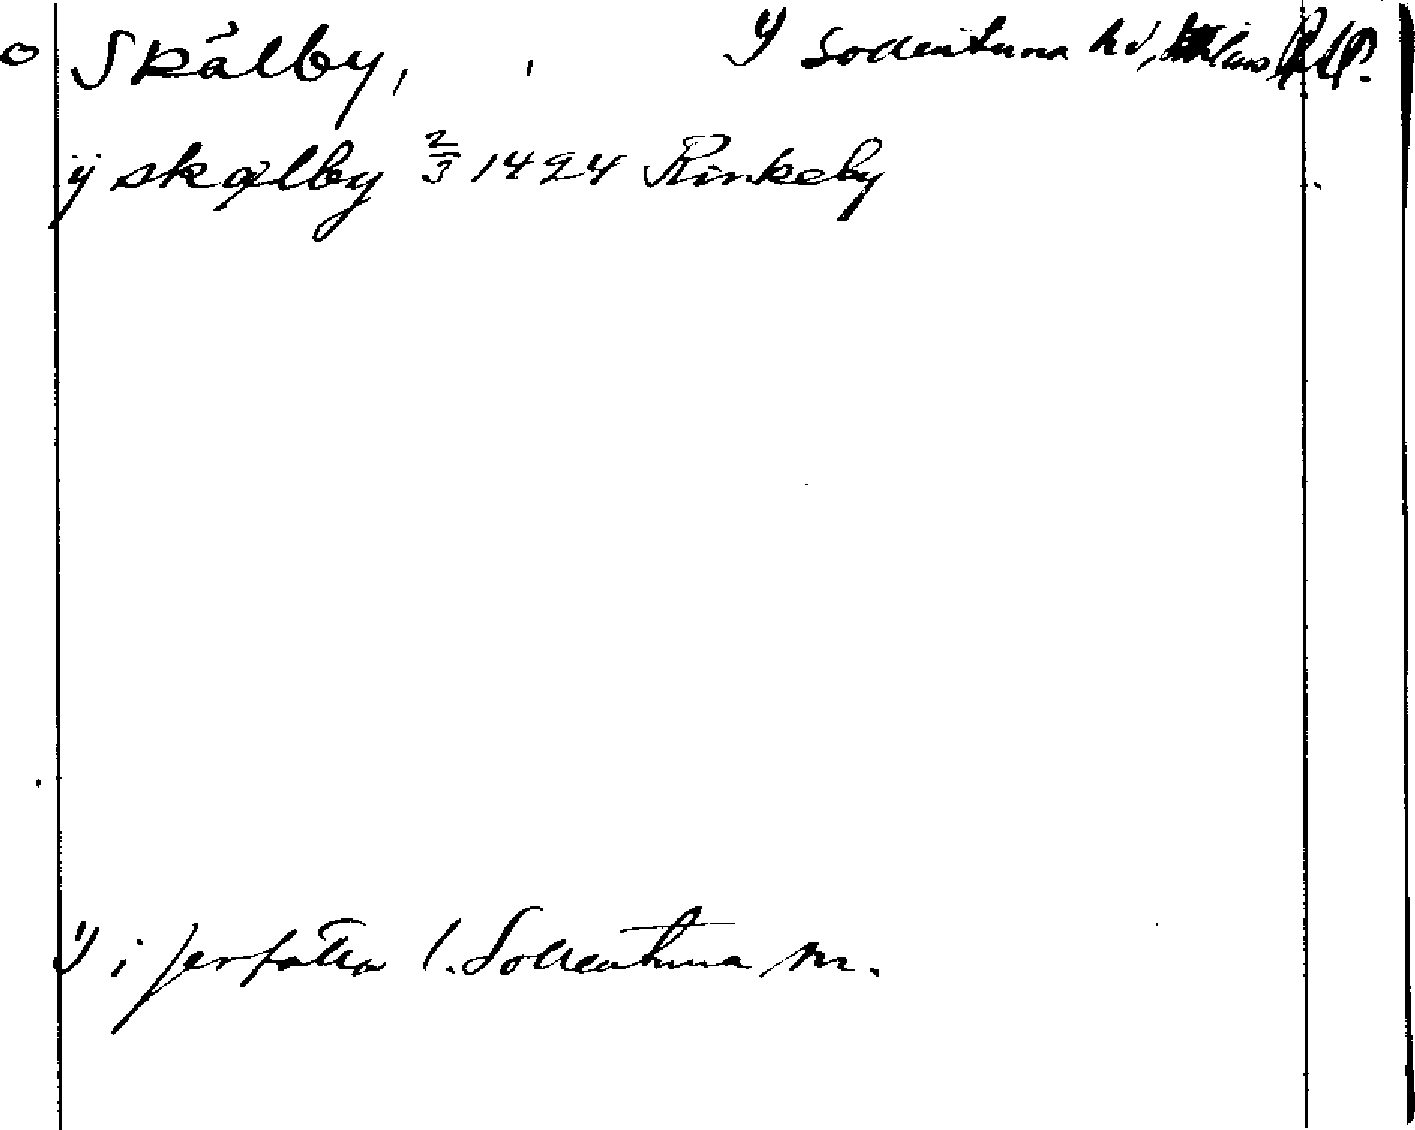 Skålby, y Sollentuna hd, Uppl.
ÿ skølby 2/3 1494 Rinkeby
y i Jerfälla l. Sollentuna sn.